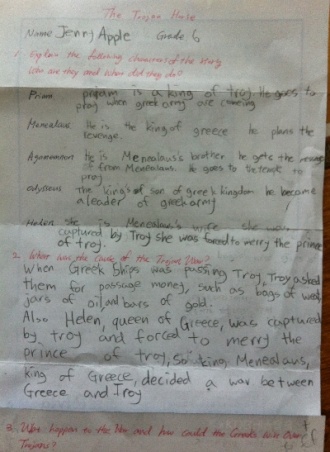 The Trojan Horse
Name Jenny Apple Grade 6
1. Explain the following characters of the story
Who are they and what did they do?
Priam priam is a king of troy. He goes to
pray when greek army are coming
Menealaus He is the king of greece he plans the
revenge.
Agamemnon He is Menealaus's brother he gets the
from Menealaus. He goes to
pray
odysseus The king's of son of greek kingdom he became
a leader of greek army
Helen she is Menealaus's wife she
captured by Troy she was forced to merry the prince
of troy.
2. What was the cause of the Trojan War?
When Greek ships was passing Troy, Troy asked
them for passage money, such as bags of
jars of oil and bars of gold.
Also Helen, queen of Greece, was captured
by troy and forced to merry the
prince of troy, so king Menealaus,
king of Greece, decided a war between
Greece and Troy
3. What happen to the and how could the Greeks
Trojans?